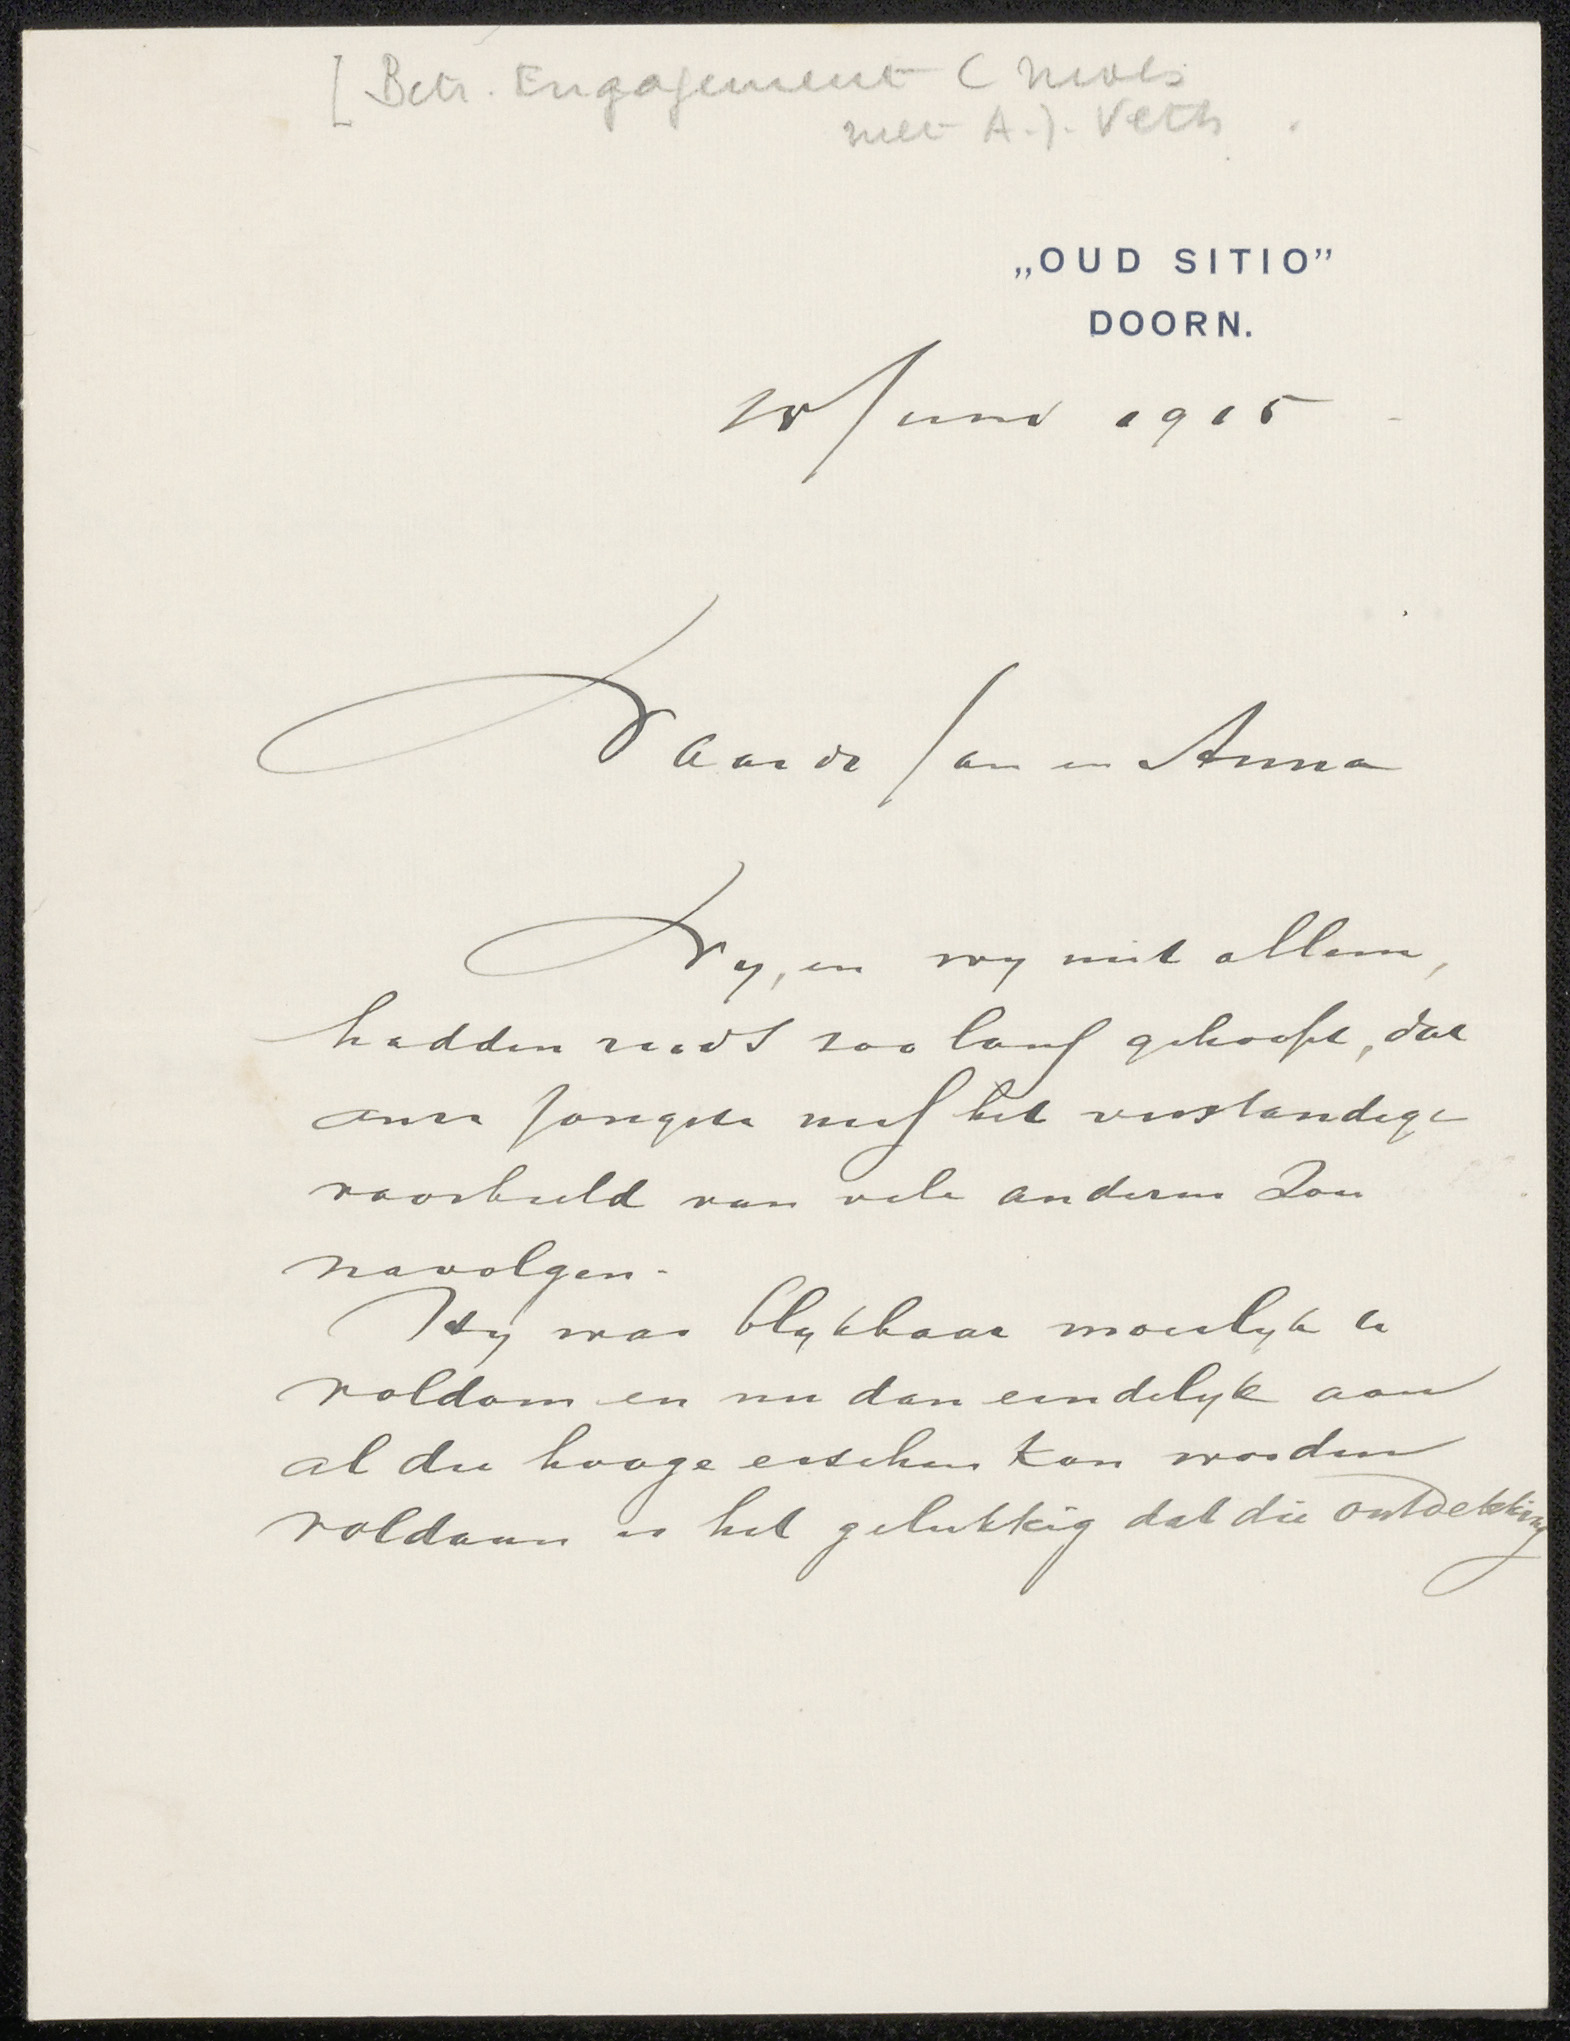 [ Betr. Engagement C
met A.J. Veth
„OUD SITIO”
DOORN.
Juni 1915
Waarde Jan en Anna
Wy, en wy niet alleen,
hadden reeds zoo lang gehoopt, dat
onze jongste neef het verstandige
voorbeeld van vele anderen zou
navolgen.
Hy was blykbaar moeilyk te
voldoen en nu dan eindelyk aan
al die hooge eischen kon worden
voldaan is het gelukkig dat die ontdekking